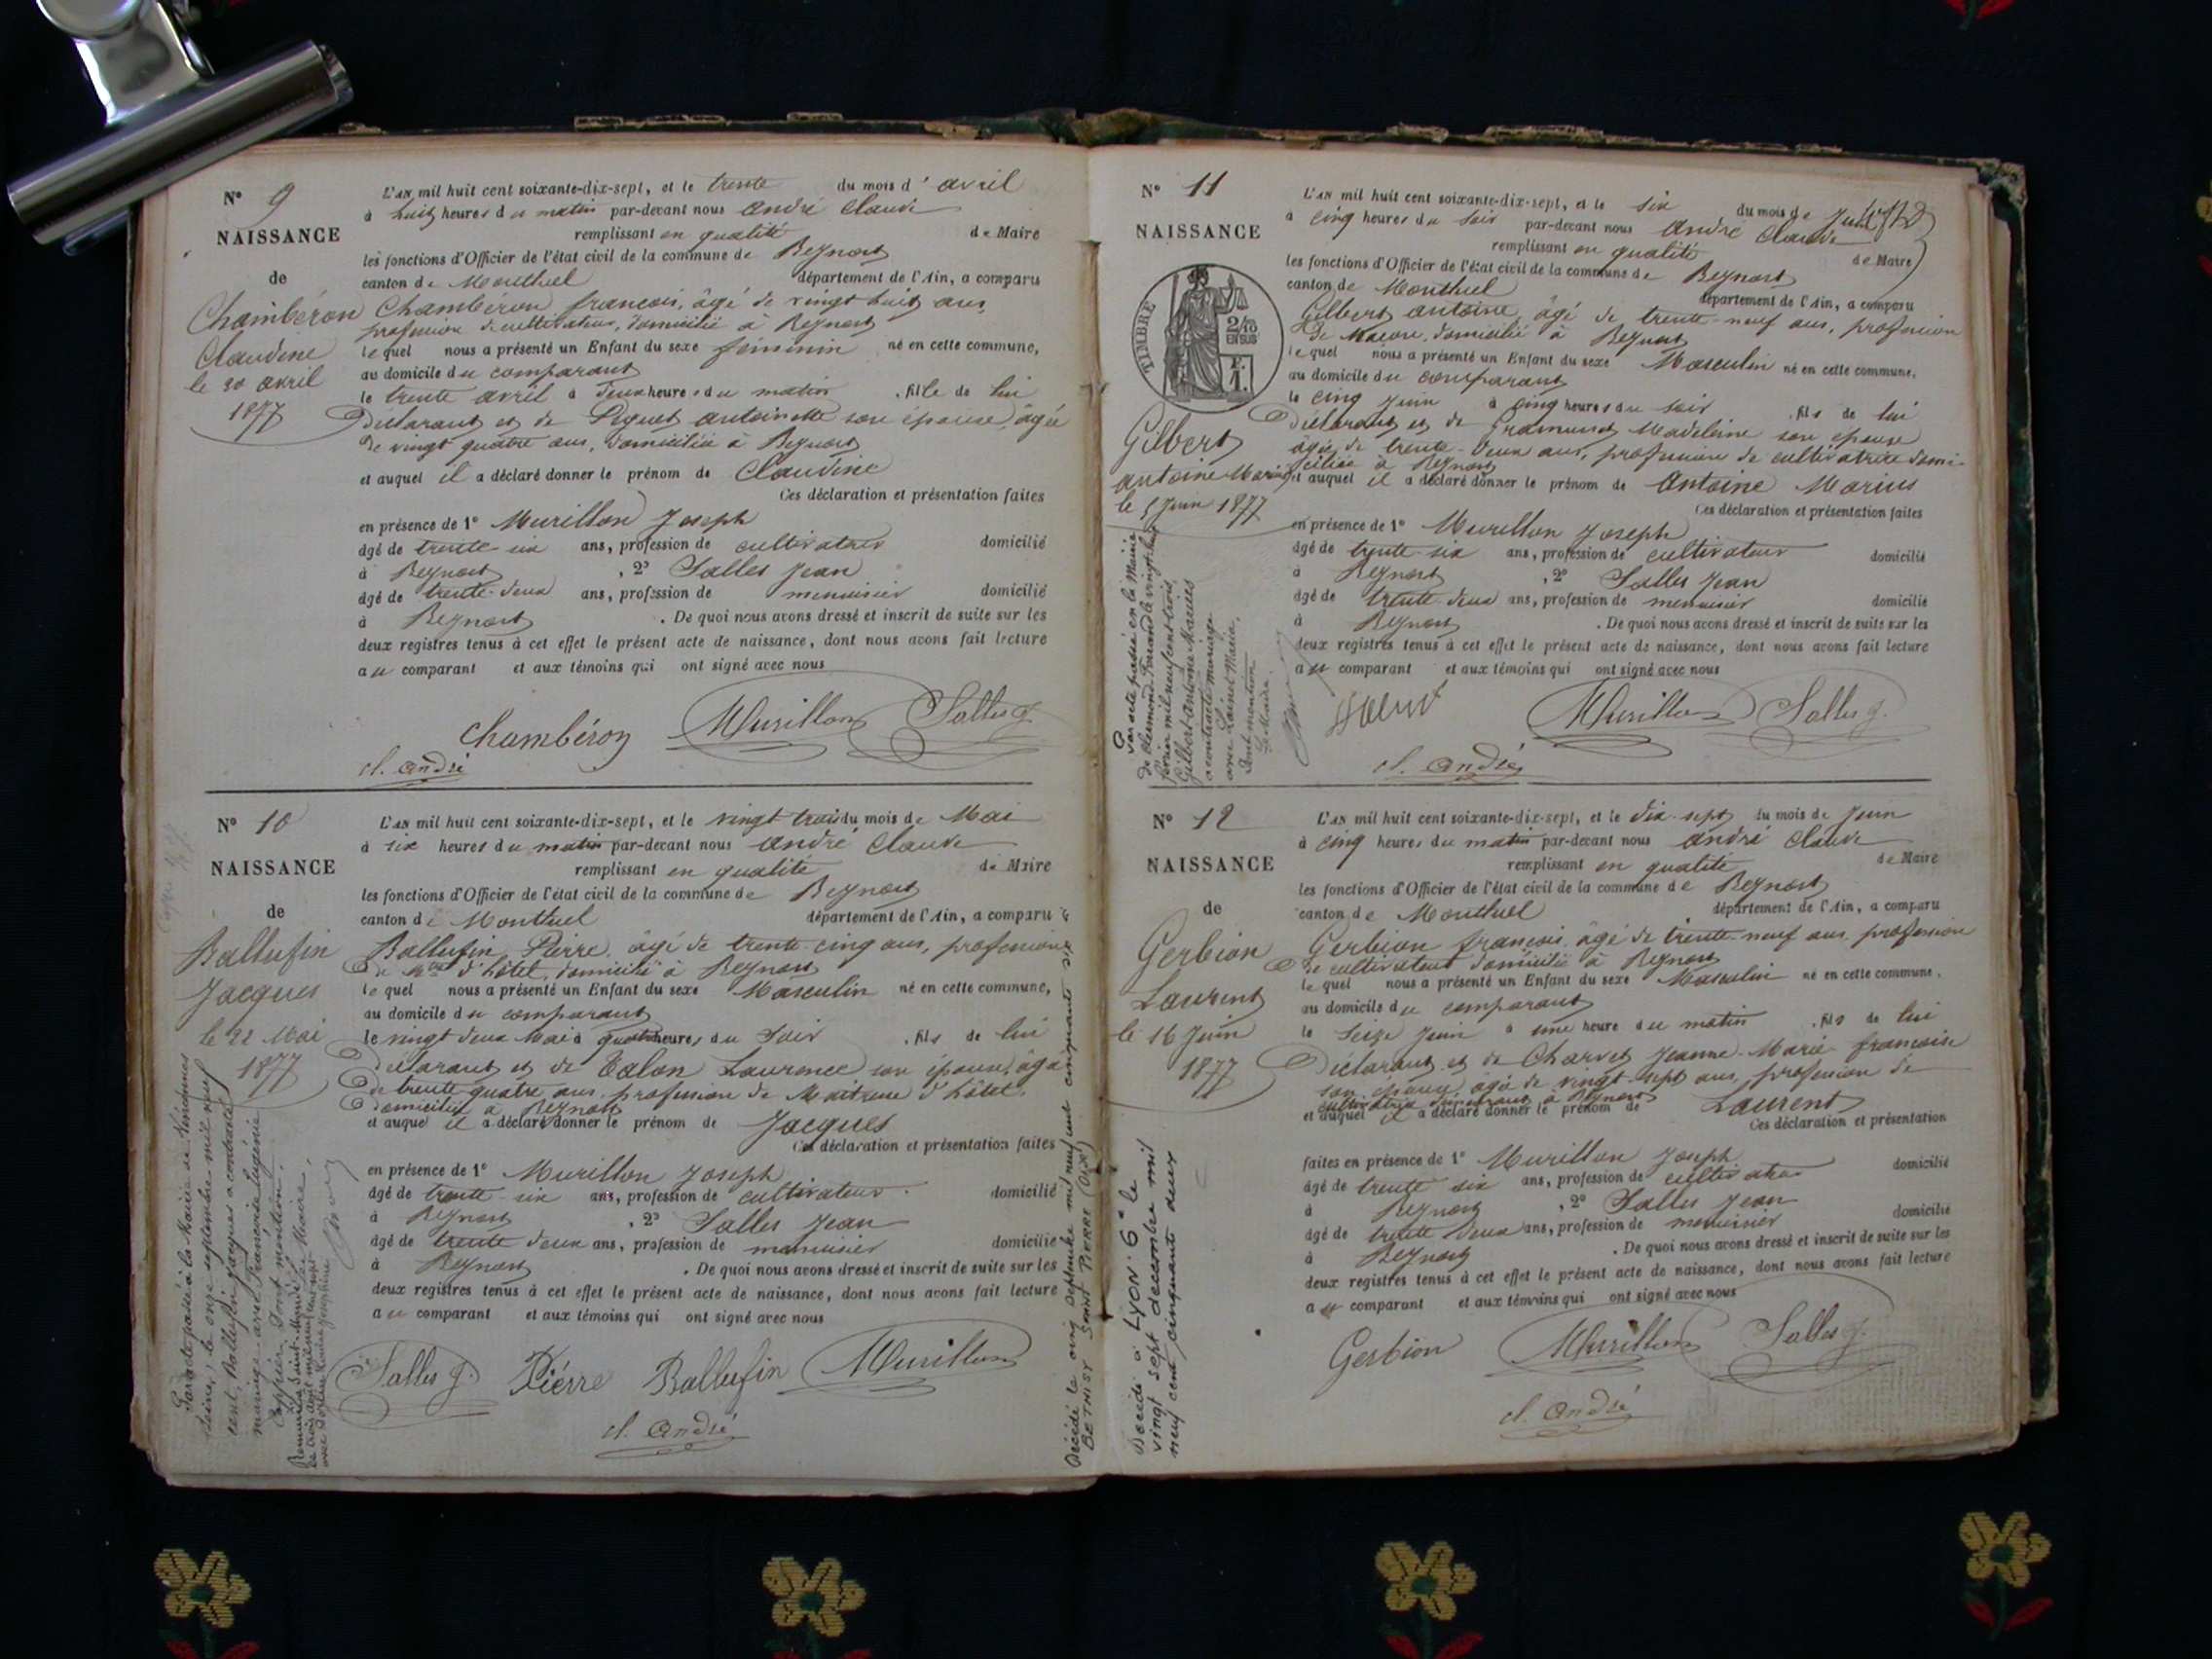 N° 9
NAISSANCE
de
Chambéron
Claudine
le 30 avril
1877
L'AN mil huit cent soixante-dix-sept, et le trente du mois d'avril
à huit heures du matin par-devant nous André Claude
remplissant en qualité de Maire
les fonctions d'Officier de l'état civil de la commune de Beynost
canton de Montluel département de l'Ain, a comparu
Chambéron françois, âgé de vingt huit ans,
profession de cultivateur, domicilié à Beynost
lequel nous a présenté un Enfant du sexe féminin né en cette commune,
au domicile du comparant
le trente avril à deux heures du matin, fille de lui
Déclarant et de Piquet antoinette son épouse, âgée
de vingt quatre ans, domiciliée à Beynost
et auquel il a déclaré donner le prénom de Claudine
Ces déclaration et présentation faites
en présence de 1° Murillon Joseph
âgé de trente-six ans, profession de cultivateur domicilié
à Beynost, 2° Salles Jean
âgé de trente-deux ans, profession de menuisier domicilié
à Beynost. De quoi nous avons dressé et inscrit de suite sur les
deux registres tenus à cet effet le présent acte de naissance, dont nous avons fait lecture
au comparant et aux témoins qui ont signé avec nous
Chambéron Murillon Salles J.
Cl. André
N° 10
NAISSANCE
de
Ballufin
Jacques
le 22 Mai
1877
L'AN mil huit cent soixante-dix-sept, et le vingt trois du mois de Mai
à six heures du matin par-devant nous André Claude
remplissant en qualité de Maire
les fonctions d'Officier de l'état civil de la commune de Beynost
canton de Montluel département de l'Ain, a comparu
Ballufin Pierre, âgé de trente-cinq ans, profession
de Mtre d'hôtel, domicilié à Beynost
lequel nous a présenté un Enfant du sexe Masculin né en cette commune,
au domicile du comparant
le vingt deux Mai à quatre heures du soir, fils de lui
Déclarant et de Talon Laurence son épouse, âgée
de trente quatre ans, profession de Maitresse d'hôtel,
domiciliée à Beynost
et auquel il a déclaré donner le prénom de Jacques
Ces déclaration et présentation faites
en présence de 1° Murillon Joseph
âgé de trente-six ans, profession de cultivateur domicilié
à Beynost, 2° Salles Jean
âgé de trente deux ans, profession de menuisier domicilié
à Beynost. De quoi nous avons dressé et inscrit de suite sur les
deux registres tenus à cet effet le présent acte de naissance, dont nous avons fait lecture
au comparant et aux témoins qui ont signé avec nous
Salles J. Piérre Ballufin Murillon
Cl. André
Par acte passé à la Mairie de
Seine, le onze septembre mil neuf
cent, Ballufin Jacques a contracté
mariage avec Françoise Eugénie
Dont mention.
Le Maire,
Décédé le cinq septembre mil neuf cent cinquante six
BETHISY SAINT PIERRE (Oise)
N° 11
NAISSANCE
TIMBRE
2/10
EN SUS
Gilbert
Antoine Marius
le 5 Juin 1877
L'AN mil huit cent soixante-dix-sept, et le six du mois de Juin
à cinq heures du soir par-devant nous André Claude
remplissant en qualité de Maire
les fonctions d'Officier de l'état civil de la commune de Beynost
canton de Montluel département de l'Ain, a comparu
Gilbert antoine, âgé de trente-neuf ans, profession
de Maçon, domicilié à Beynost
lequel nous a présenté un Enfant du sexe Masculin né en cette commune,
au domicile du comparant
le cinq Juin à cinq heures du soir, fils de lui
Déclarant et de Gramund Madeleine son épouse
âgée de trente-deux ans, profession de cultivatrice domi-
ciliée à Beynost
et auquel il a déclaré donner le prénom de Antoine Marius
Ces déclaration et présentation faites
en présence de 1° Murillon Joseph
âgé de trente-six ans, profession de cultivateur domicilié
à Beynost, 2° Salles Jean
âgé de trente-deux ans, profession de menuisier domicilié
à Beynost. De quoi nous avons dressé et inscrit de suite sur les
deux registres tenus à cet effet le présent acte de naissance, dont nous avons fait lecture
au comparant et aux témoins qui ont signé avec nous
Murillon Salles J.
Cl. André
Par acte passé en la Mairie
de Clermond-Ferrand le vingt-huit
février mil neuf cent trois,
Gilbert Antoine Marius
a contracté mariage
avec Lainet Maria,
Dont mention
Le Maire,
N° 12
NAISSANCE
de
Gerbion
Laurent
le 16 Juin
1877
L'AN mil huit cent soixante-dix-sept, et le dix-sept du mois de Juin
à cinq heures du matin par-devant nous André Claude
remplissant en qualité de Maire
les fonctions d'Officier de l'état civil de la commune de Beynost
canton de Montluel département de l'Ain, a comparu
Gerbion françois, âgé de trente-neuf ans profession
de cultivateur domicilié à Beynost
lequel nous a présenté un Enfant du sexe Masculin né en cette commune,
au domicile du comparant
le seize Juin à une heure du matin, fils de lui
Déclarant et de Charvet Jeanne-Marie françoise
son épouse, âgée de vingt-sept ans, profession de
cultivatrice demeurant à Beynost
et auquel il a déclaré donner le prénom de Laurent
Ces déclaration et présentation
faites en présence de 1° Murillon Joseph
âgé de trente six ans, profession de cultivateur domicilié
à Beynost, 2° Salles Jean
âgé de trente deux ans, profession de menuisier domicilié
à Beynost. De quoi nous avons dressé et inscrit de suite sur les
deux registres tenus à cet effet le présent acte de naissance, dont nous avons fait lecture
au comparant et aux témoins qui ont signé avec nous
Gerbion Murillon Salles J.
Cl. André
Décédé à LYON 6° le
vingt sept décembre mil
neuf cent cinquante deux